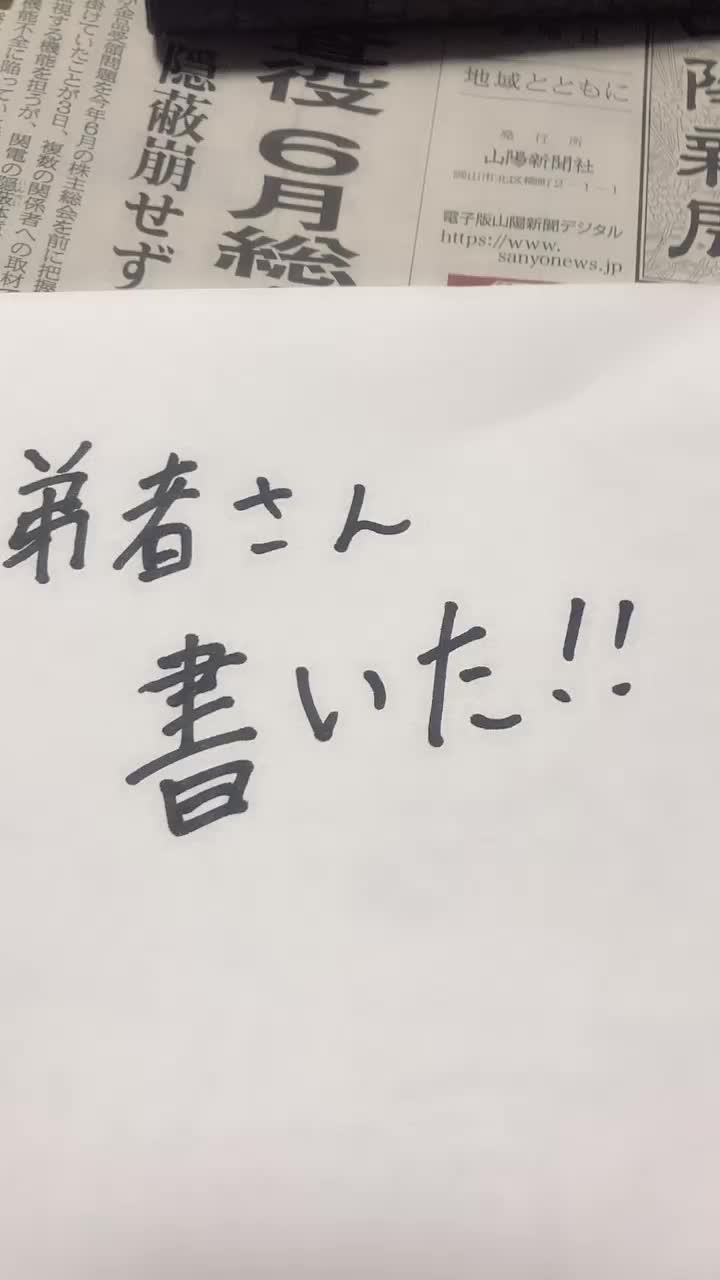 陽新聞
地域とともに
発行所
山陽新聞社
岡山市北区柳町2-1-1
電子版山陽新聞デジタル
https://www.
sanyonews.jp
役 6月総
隠蔽崩せず
金品受領問題を今年6月の株主総会を前に把握
掛けていたことが3日、複数の関係者への取材
視する機能を担うが、関電の隠蔽体
機能不全に陥ってい
弟者さん
書いた!!